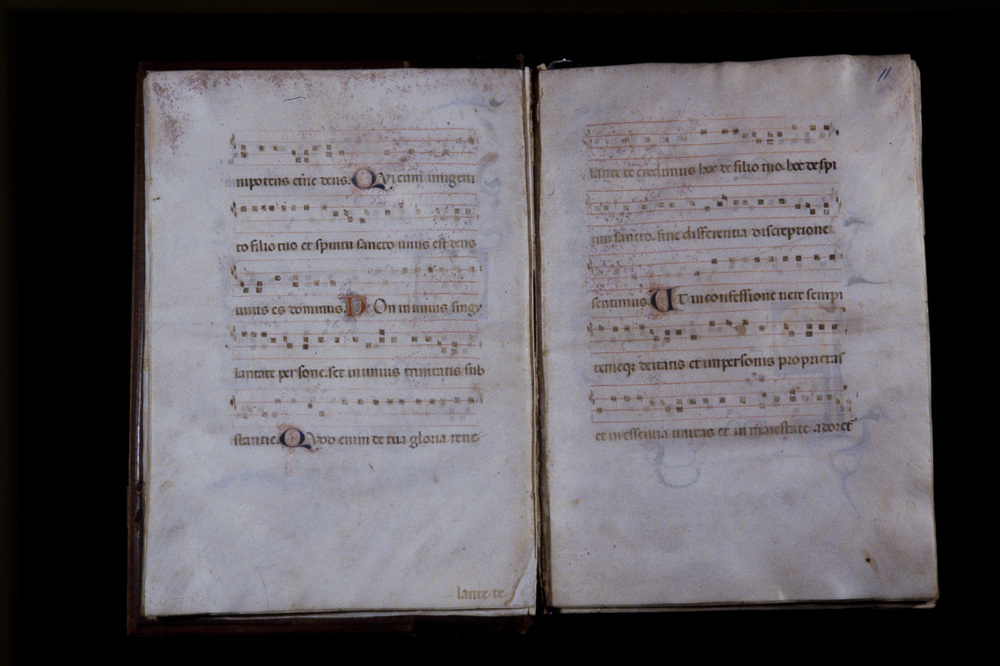 nipotens etne deus. Qui cum unigeni
to filio tuo et spiritu sancto unus est deus
unus es dominus. Non in unius singu
laritate persone. set in unius trinitatis sub
stantie. Quod enim de tua gloria reue
lante te
11
lante te credimus hoc de filio tuo. hoc de spi
ritu sancto. sine differentia disceptione
sentimus. Ut in confessione uere sempi
terneq; deitatis et in personis proprietas
et in essentia unitas et in maiestate adoret